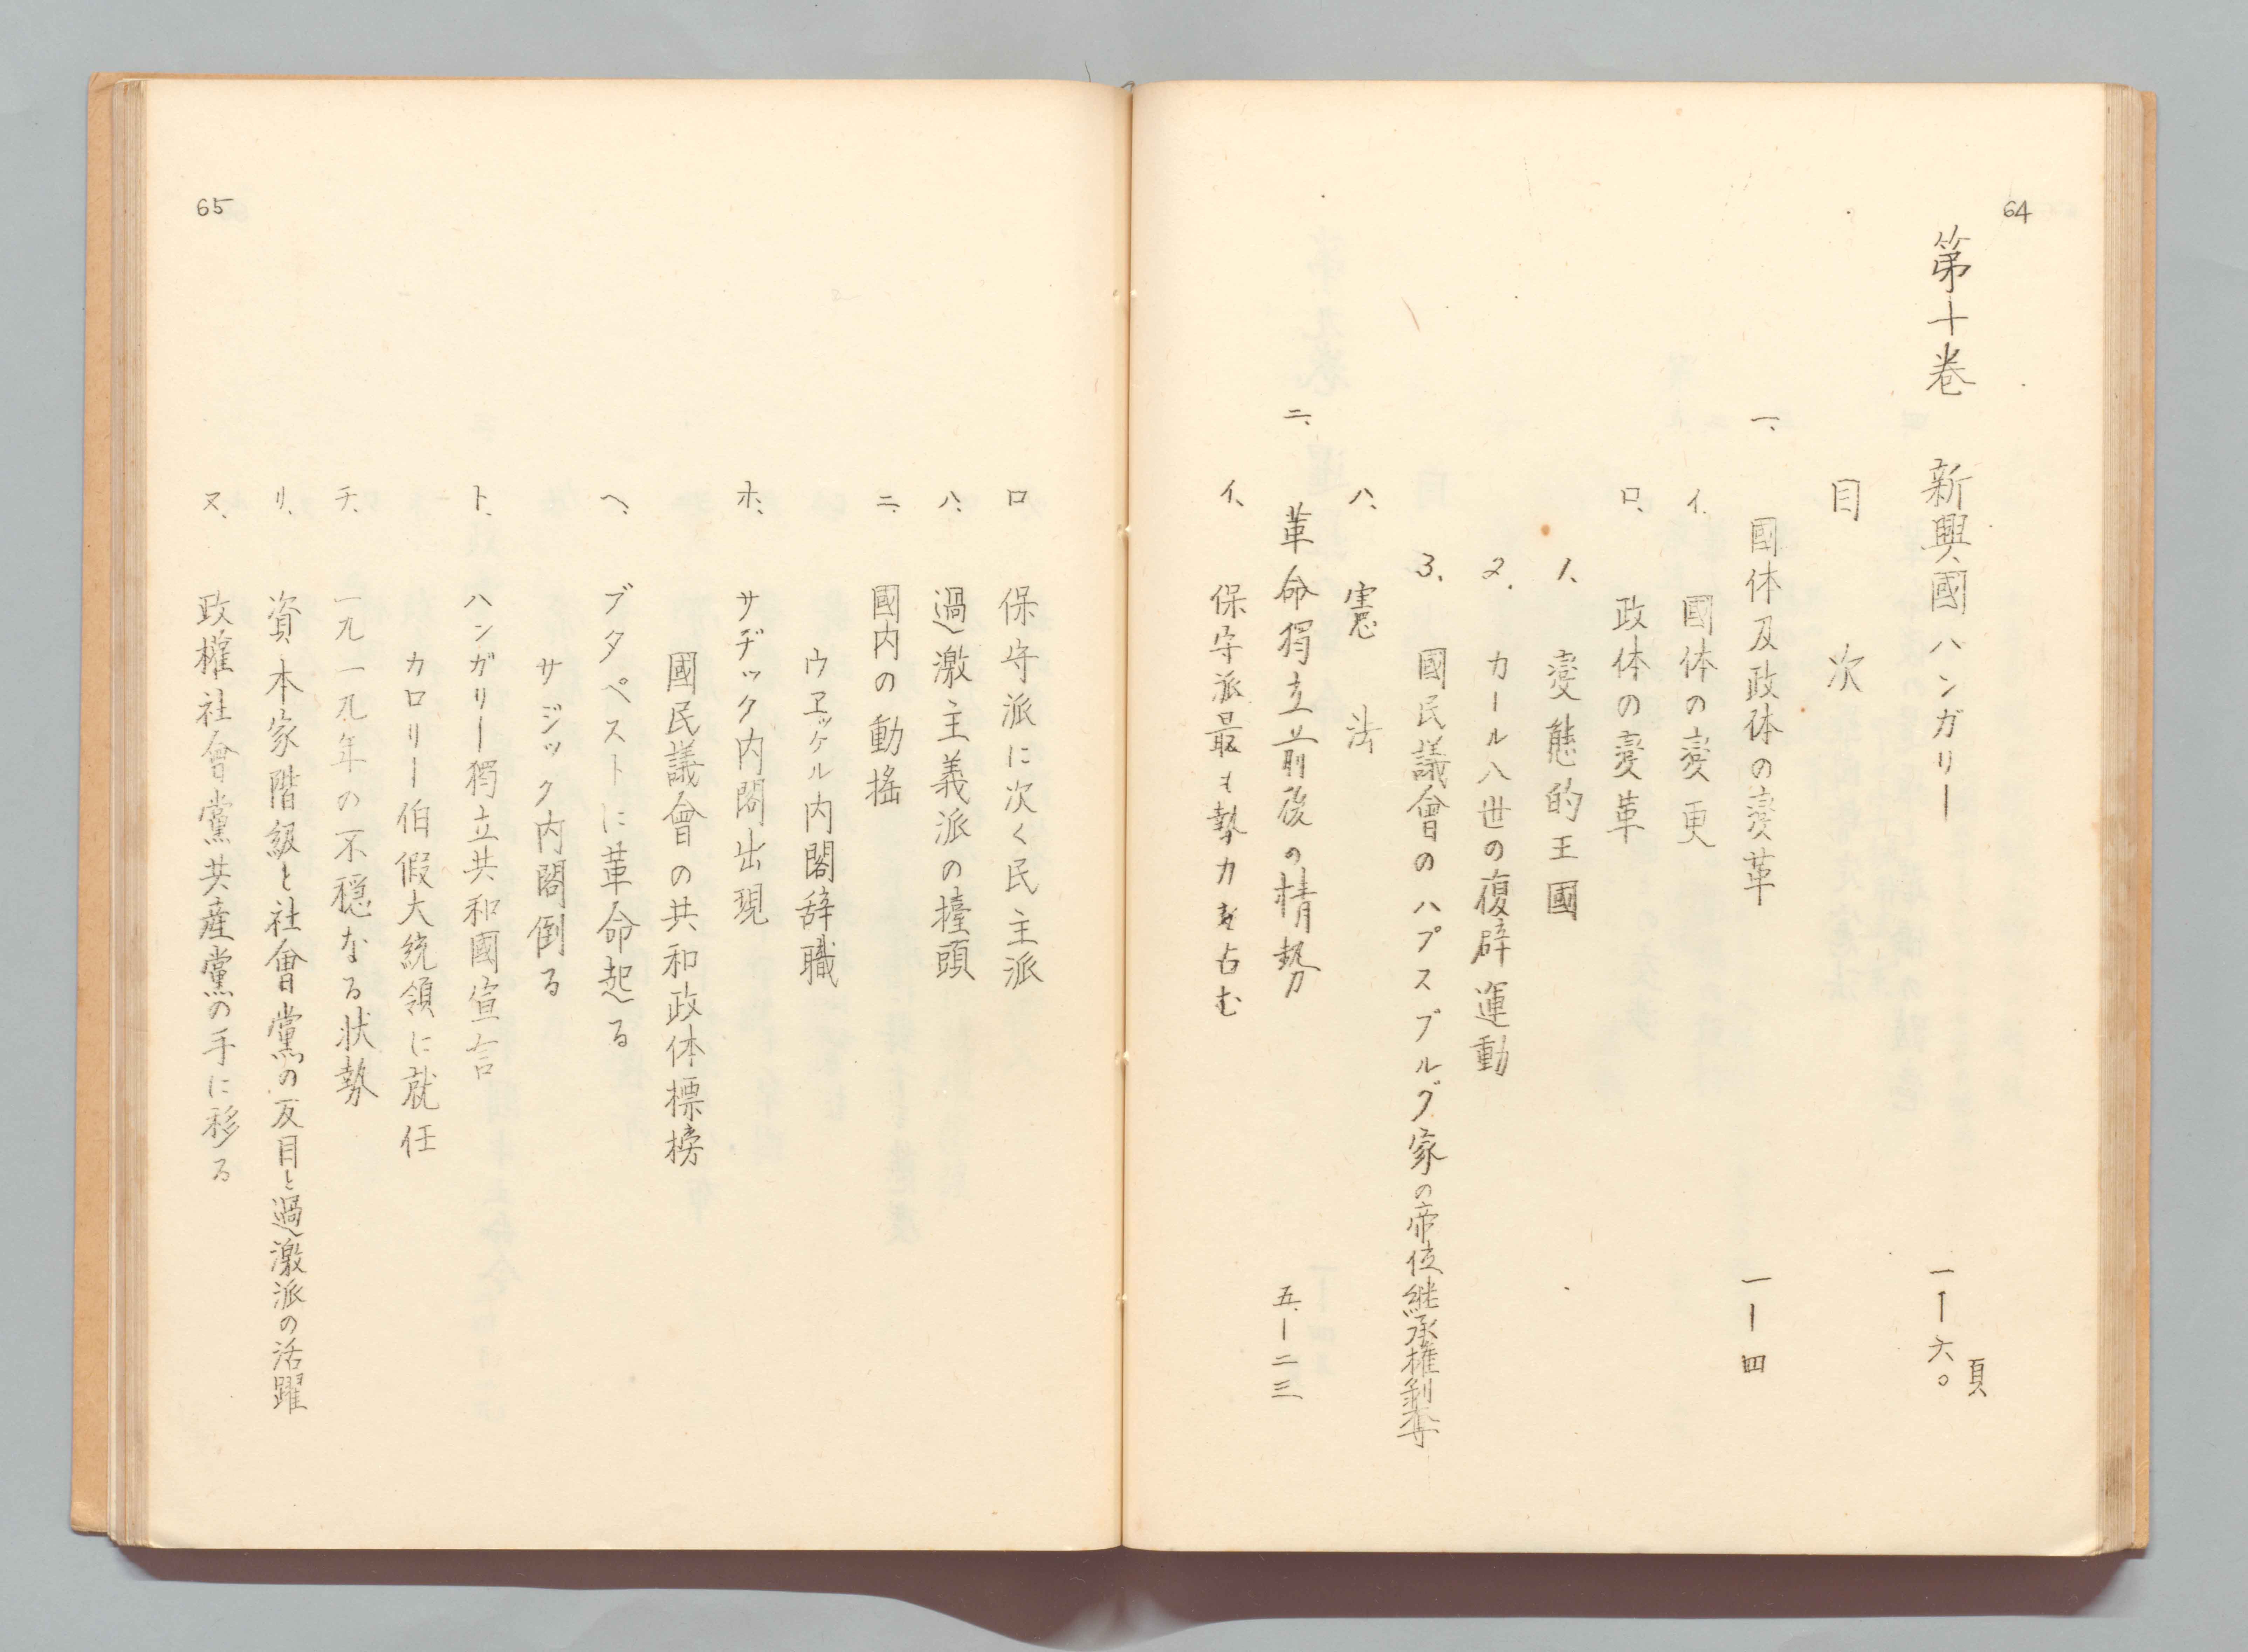 64
第十卷　新興國ハンガリー　一ー六〇頁
目　次
一、國体及政体の変革　一ー四
イ、國体の変更
ロ、政体の変革
1、変態的王國
2、カール八世の復辟運動
3、國民議會のハプスブルグ家の帝位継承権剥奪
ハ、憲　法
二、革命獨立前後の情勢　五ー二三
イ、保守派最も勢力を占む
65
ロ　保守派に次く民主派
ハ、過激主義派の擡頭
ニ、國内の動搖
ウヱッケル内閣辞職
ホ、サヂック内閣出現
國民議會の共和政体標榜
ヘ、ブタペストに革命起る
サジック内閣倒る
ト、ハンガリー獨立共和國宣言
カロリー伯假大統領に就任
チ、一九一九年の不穏なる状勢
リ、資本家階級と社會黨の反目と過激派の活躍
ヌ、政権社會黨共産黨の手に移る